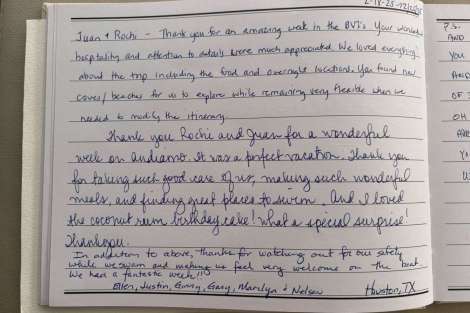 2-18-25 -
Juan + Rochi - Thank you for an amazing week in the BVI's. Your wonderful
hospitality and attention to details were much appreciated. We loved everything
about the trip including the food and overnight locations. You found new
coves/beaches for us to explore while remaining very flexible when we
needed to modify the itinerary
Thank you Rochi and Juan for a wonderful
week on Andiamo. It was a perfect vacation. Thank you
for taking such good care of us, making such wonderful
meals, and finding great places to swim. And I loved
the coconut rum birthday cake! What a special surprise!
Thank you.
In addition to above, thanks for watching out for our safety
while we swam and making us feel very welcome on the boat
We had a fantastic week!!!
Ellen, Justin, Ginny, Gary, Marilyn + Nelson Houston, TX
P.S.
AND
YOU
OF
OH
ARE
YO